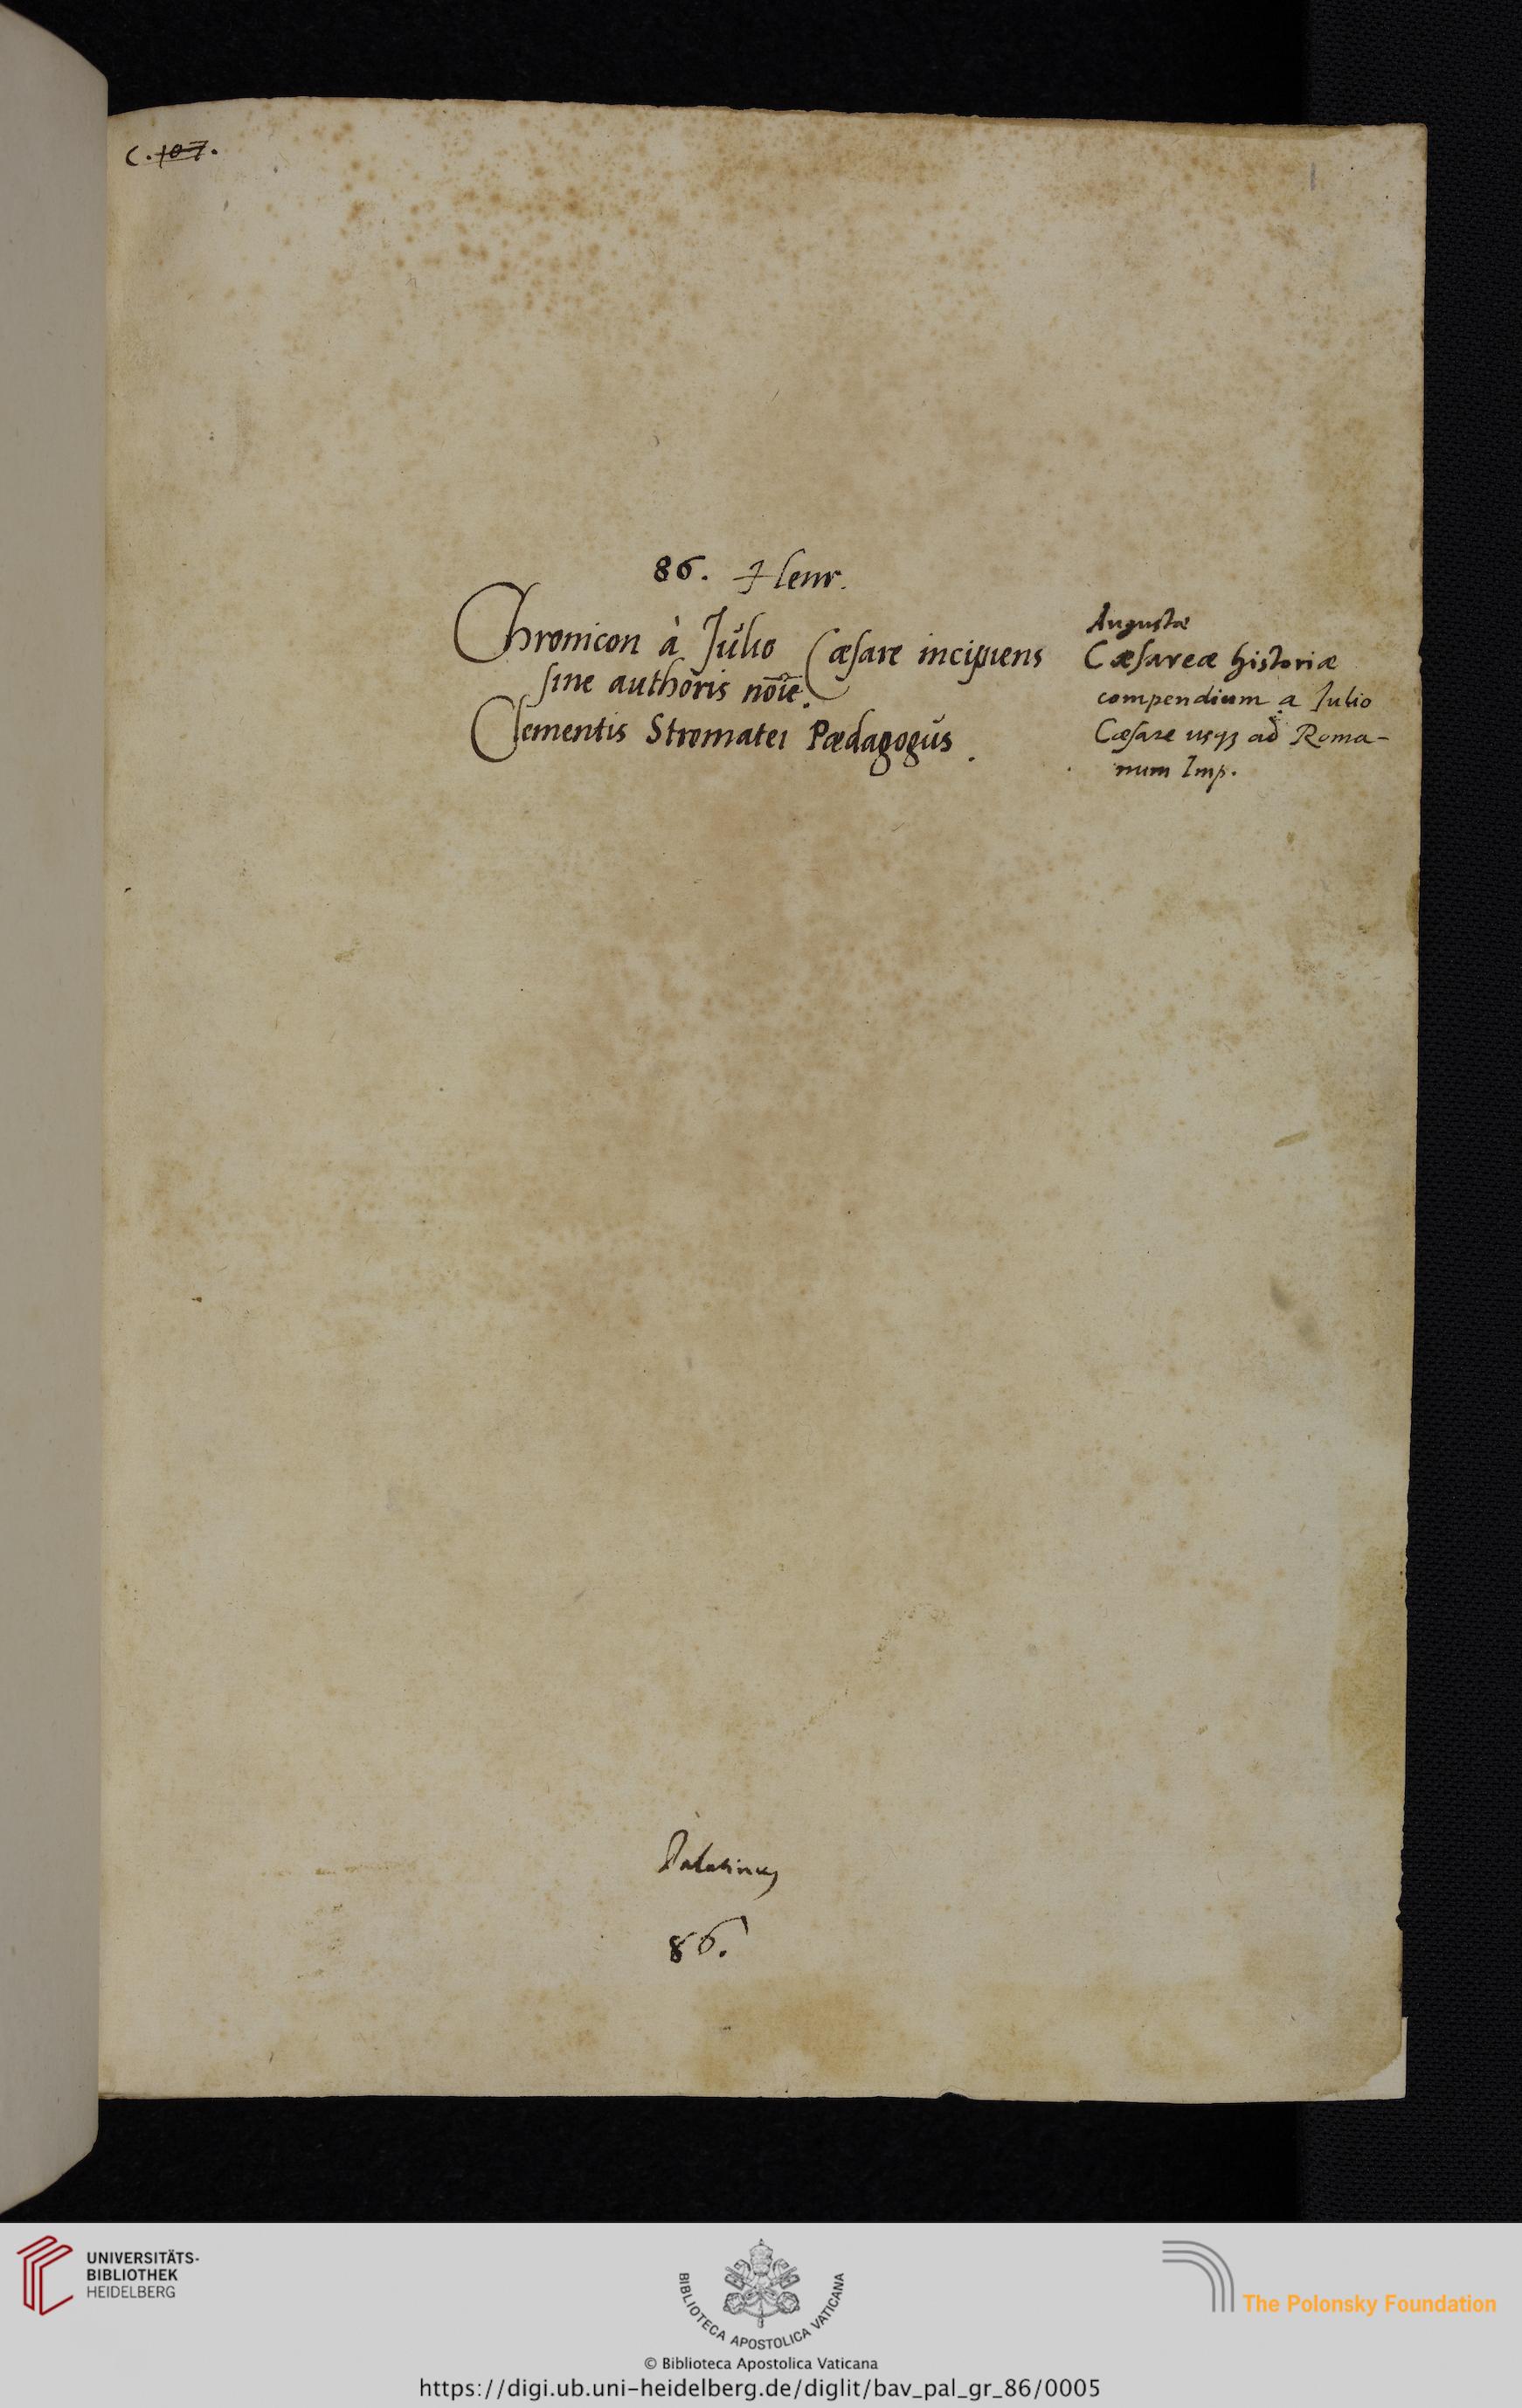 C. 107.
1
86. Henr.
Chronicon à Julio Cæsare incipiens
sine authoris nōiē.
Clementis Stromatei Pædagogus.
Augustæ
Cæsareæ historiæ
compendium a Julio
Cæsare usqȝ ad Roma-
num Imp.
Palatinus
86.
UNIVERSITÄTS-
BIBLIOTHEK
HEIDELBERG
BIBLIOTECA APOSTOLICA VATICANA
The Polonsky Foundation
© Biblioteca Apostolica Vaticana
https://digi.ub.uni-heidelberg.de/diglit/bav_pal_gr_86/0005